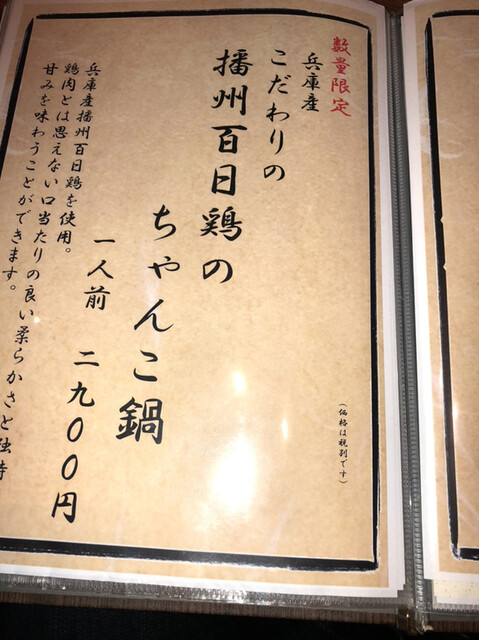 数量限定
兵庫産
こだわりの
播州百日鶏の
ちゃんこ鍋
一人前 二九〇〇円
兵庫産播州百日鶏を使用。
鶏肉とは思えない口当たりの良い柔らかさと独特
甘みを味わうことができます。
(価格は税別です)